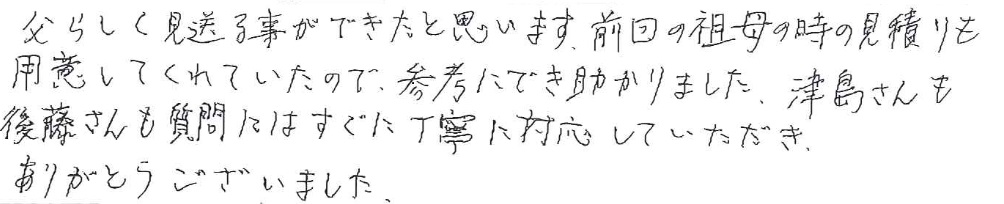 父らしく見送る事ができたと思います、前回の祖母の時の見積りも
用意してくれていたので、参考にでき助かりました、津島さんも
後藤さんも質問にはすぐに丁寧に対応していただき、
ありがとうございました、